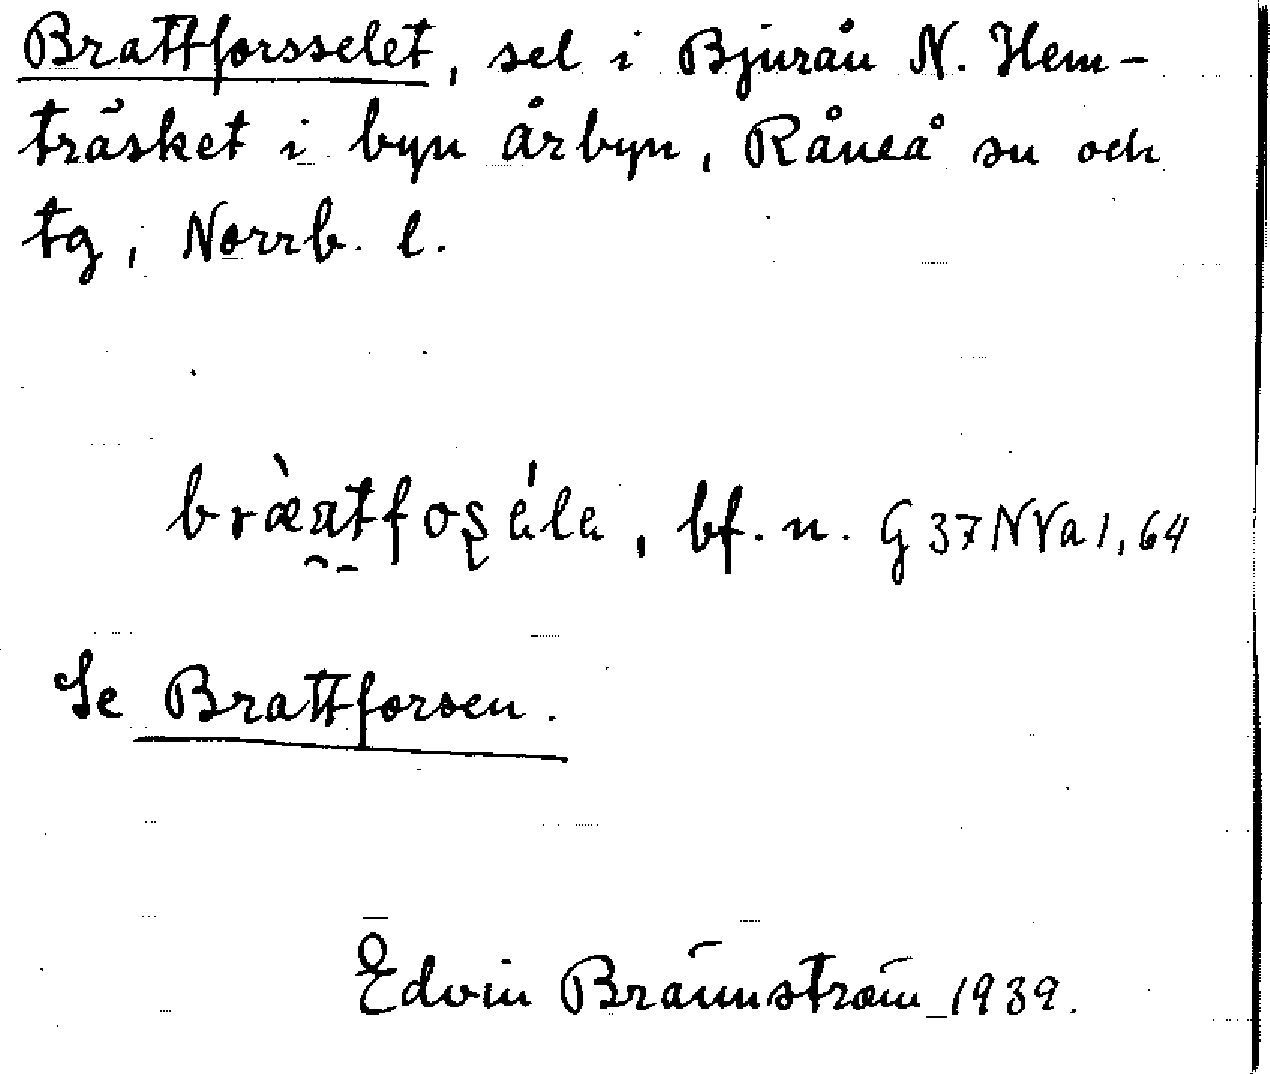 Brattforsselet, sel i Bjurån N. Hem-
träsket i byn Årbyn, Råneå sn och
tg, Norrb. l.
bf. n. G37NVa1,64
Se Brattforsen.
Edvin Brännström 1939.